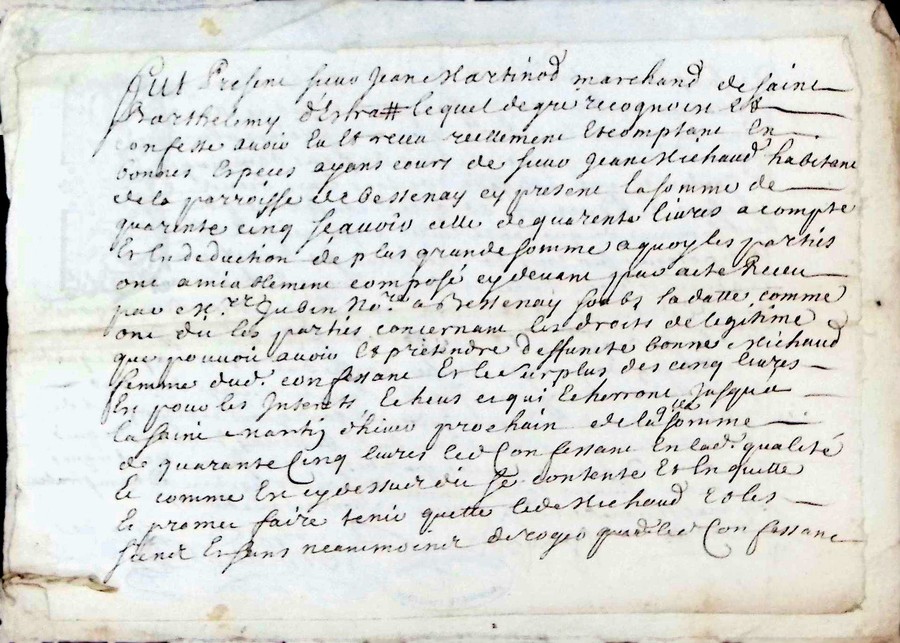 Fut Present sieur Jean Martinod marchand de Saint
Barthelemy d'Estra# lequel de gré recognoist Et
confesse avoir Eu Et receu reellement Et comptant En
bonnes Especes ayans cours de sieur Jean Michaud habitant
de la parroisse de Bessenay cy present la somme de
quarente cinq scavoir celle de quarente livres a compte
Et En deduction de plus grande somme a quoy les parties
ont amiablement composé cy devant par acte Receu
par Mre Jubin Nore a Bessenay soubs sa datte comme
ont dit les parties concernant les droits de legitime
que pouvoit avoir Et pretendre deffunte bonne Michaud
femme dud. confessant Et le surplus des cinq livres
En pour les Interets Echeus et qui Echerront Jusqu'a
la saint Martin d'hiver prochain de lad. somme
de quarante Cinq livres led. Confessant En lad. qualité
Et comme En cy dessus dit se contente Et En quitte
Et promet faire tenir quitte led. Michaud Et les
siens sans neanmoins deroger par led. Confessant